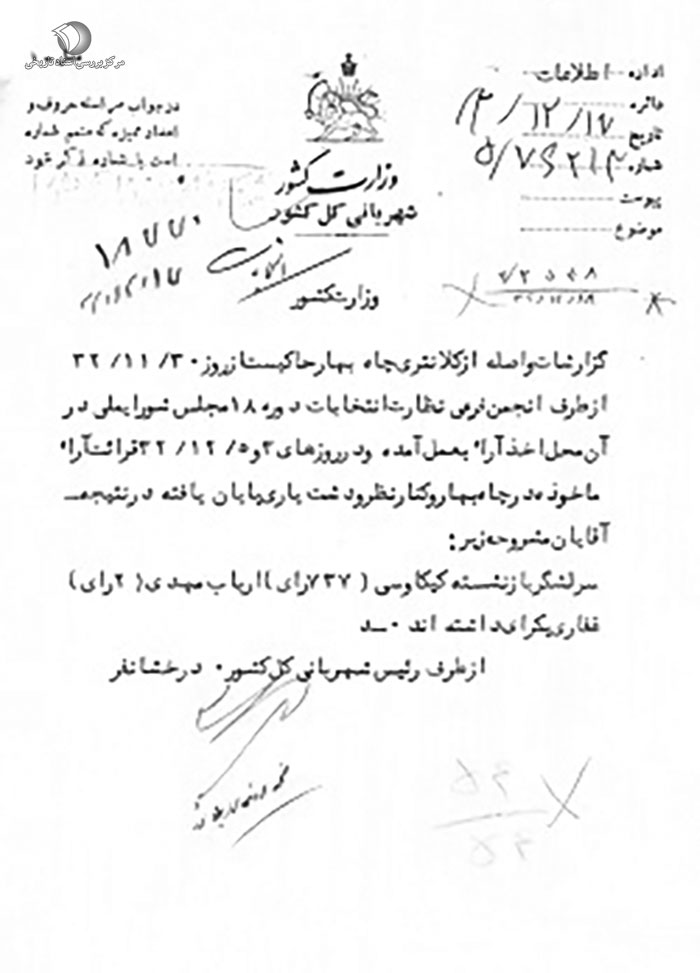 مرکز بررسی اسناد تاریخی
اداره اطلاعات
دائره
تاریخ ۳۲/۱۲/۱۷
شماره
پیوست
موضوع
در جواب مراسله حروف و
اعداد ممیزه که متمم شماره
است با شماره ذکر خود
وزارت کشور
شهربانی کل کشور
۱۸۷۷۰
وزارت کشور
گزارشات واصله از کلانتری چاه بهار حاکیست از روز ۳۰/ ۱۱/ ۳۲
از طرف انجمن فرعی نظارت انتخابات دوره ۱۸ مجلس شورایملی در
آن محل اخذ آراء بعمل آمده و در روزهای ۳ و ۵/ ۱۲/ ۳۲ قرائت آراء
ماخوذه در چاه بهار و کنار نظر و دشت یاری پایان یافته در نتیجه
آقایان مشروحه زیر:
سرلشگر بازنشسته کیکاوسی ( ۷۳۷ رای) ارباب مهدی ( ۲ رای)
غفاری یکرای داشته اند ۰ـد
از طرف رئیس شهربانی کل کشور ۰ درخشانفر